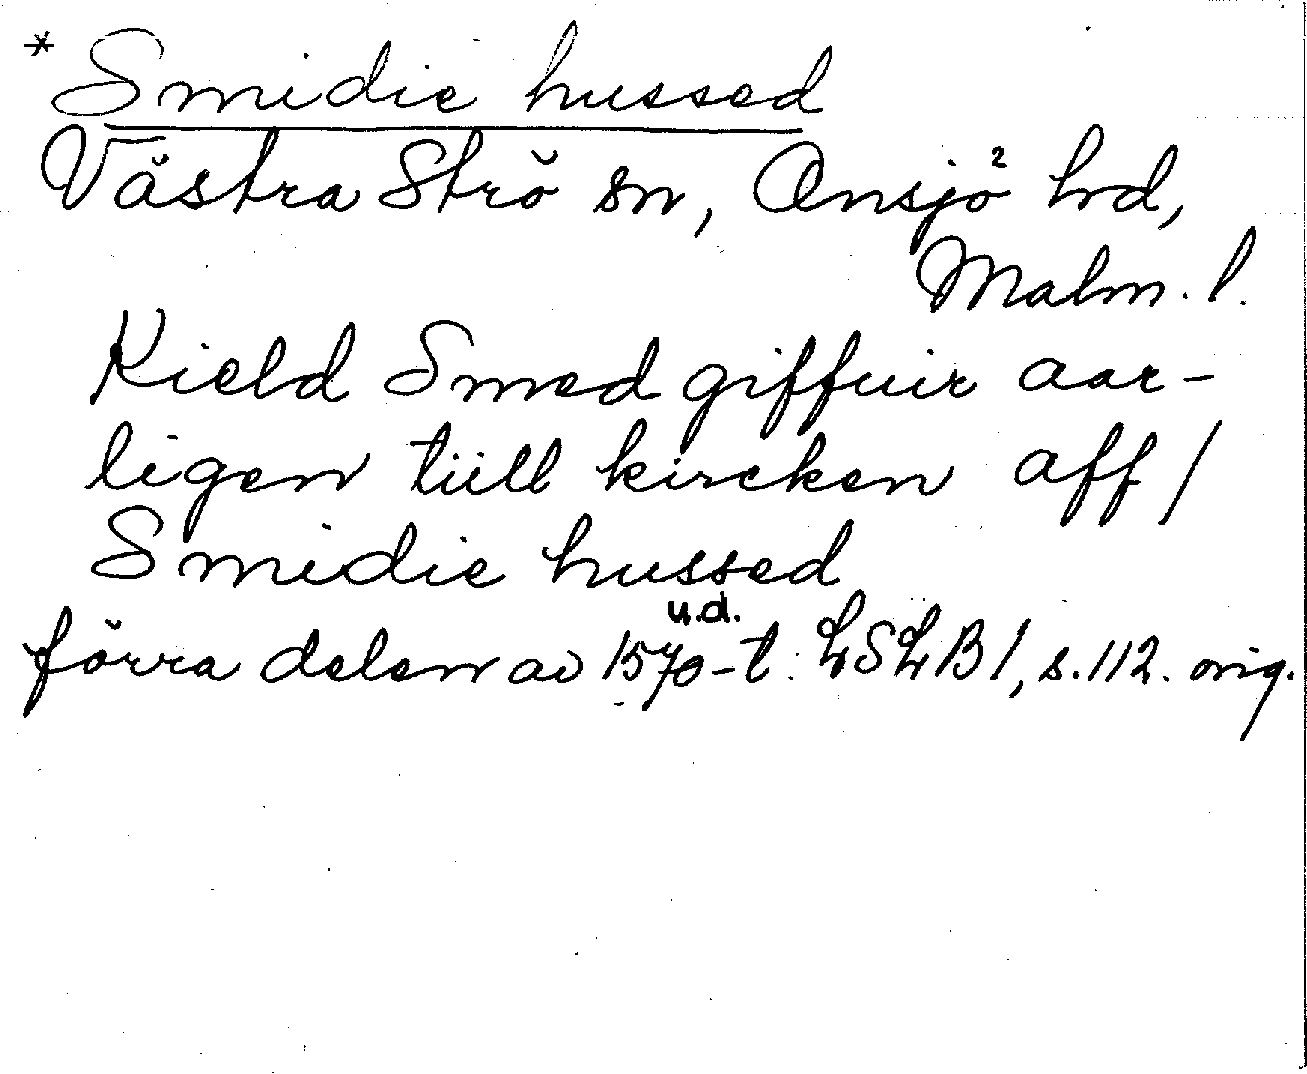 * Smidie hussed
Västra Strö sn, Onsjö hd,
Malm. l.
Kield Smed giffuir aar-
ligen tiill kircken aff /
Smidie hussed
u.d.
förra delen av 1570-t. LSLB 1, s. 112. orig.